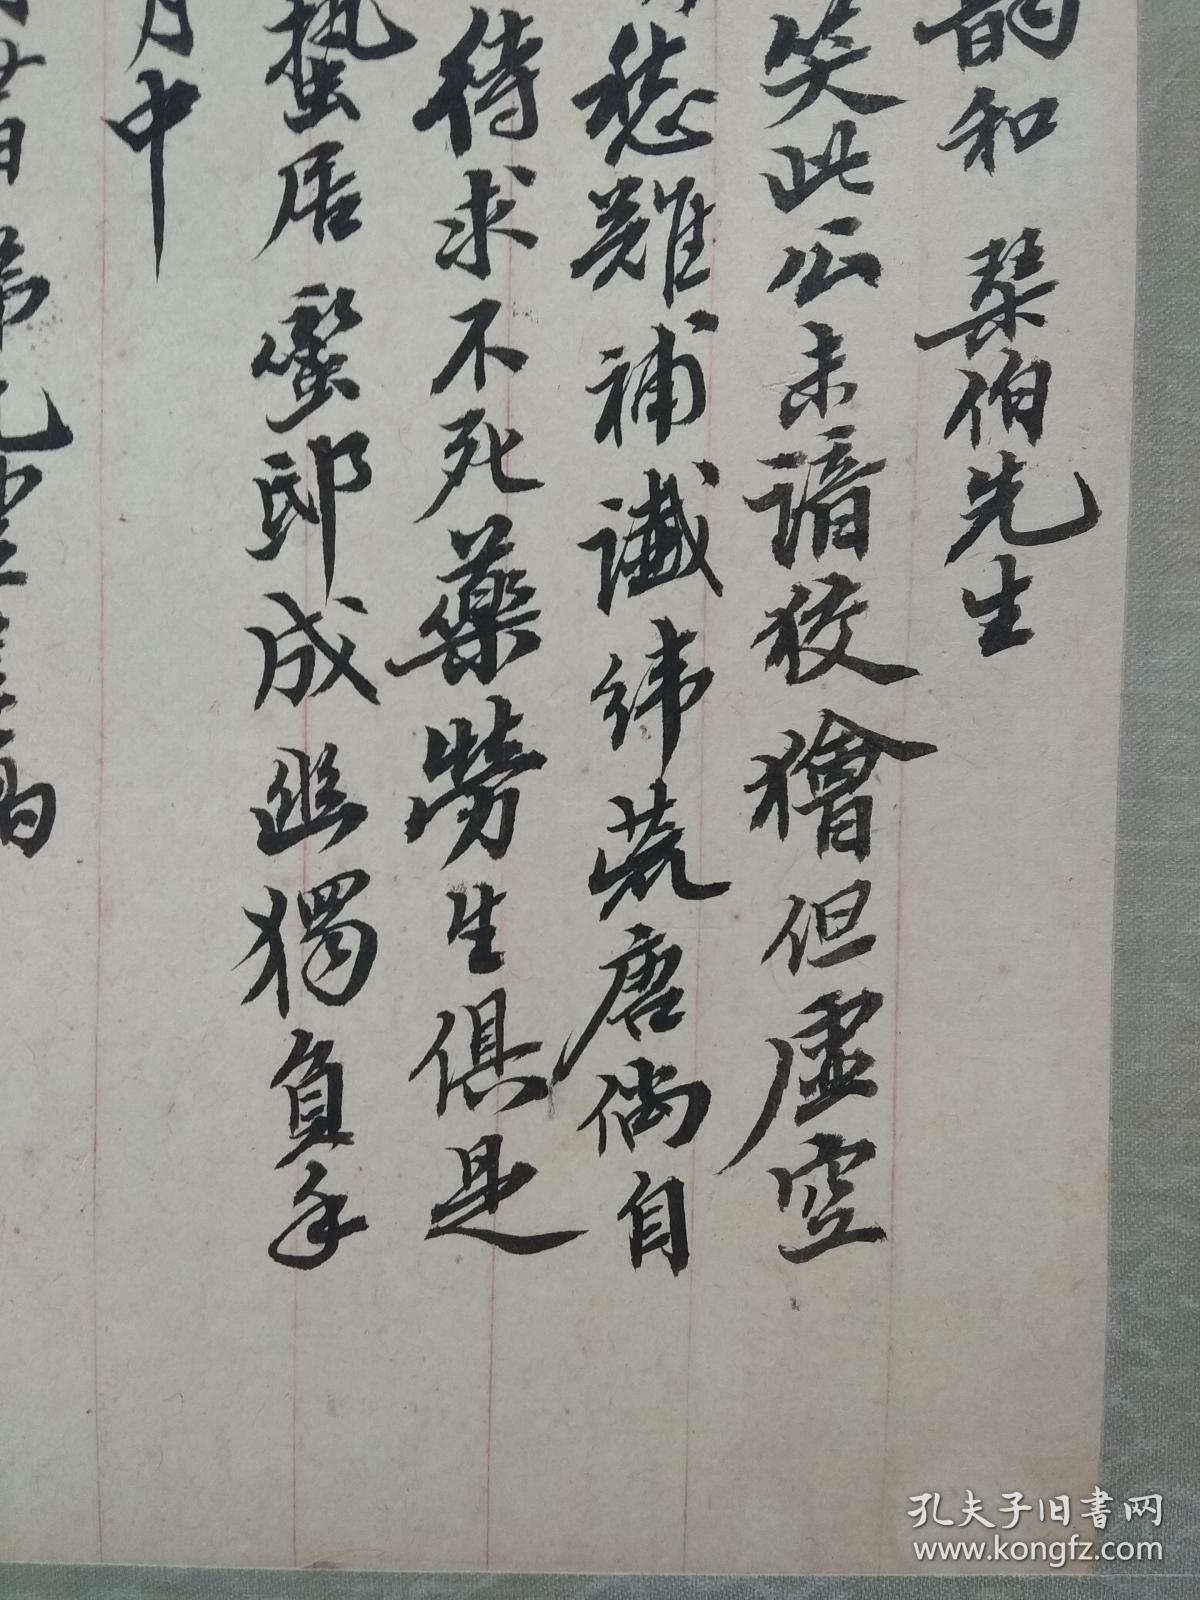 韵和 琴伯先生
笑此公未谙狡獪但虛空
愁難補讖緯荒唐倘自
待求不死藥勞生俱是
蟄居蠻邸成幽獨負手
月中
廿日 弟
孔夫子旧書网
www.kongfz.com